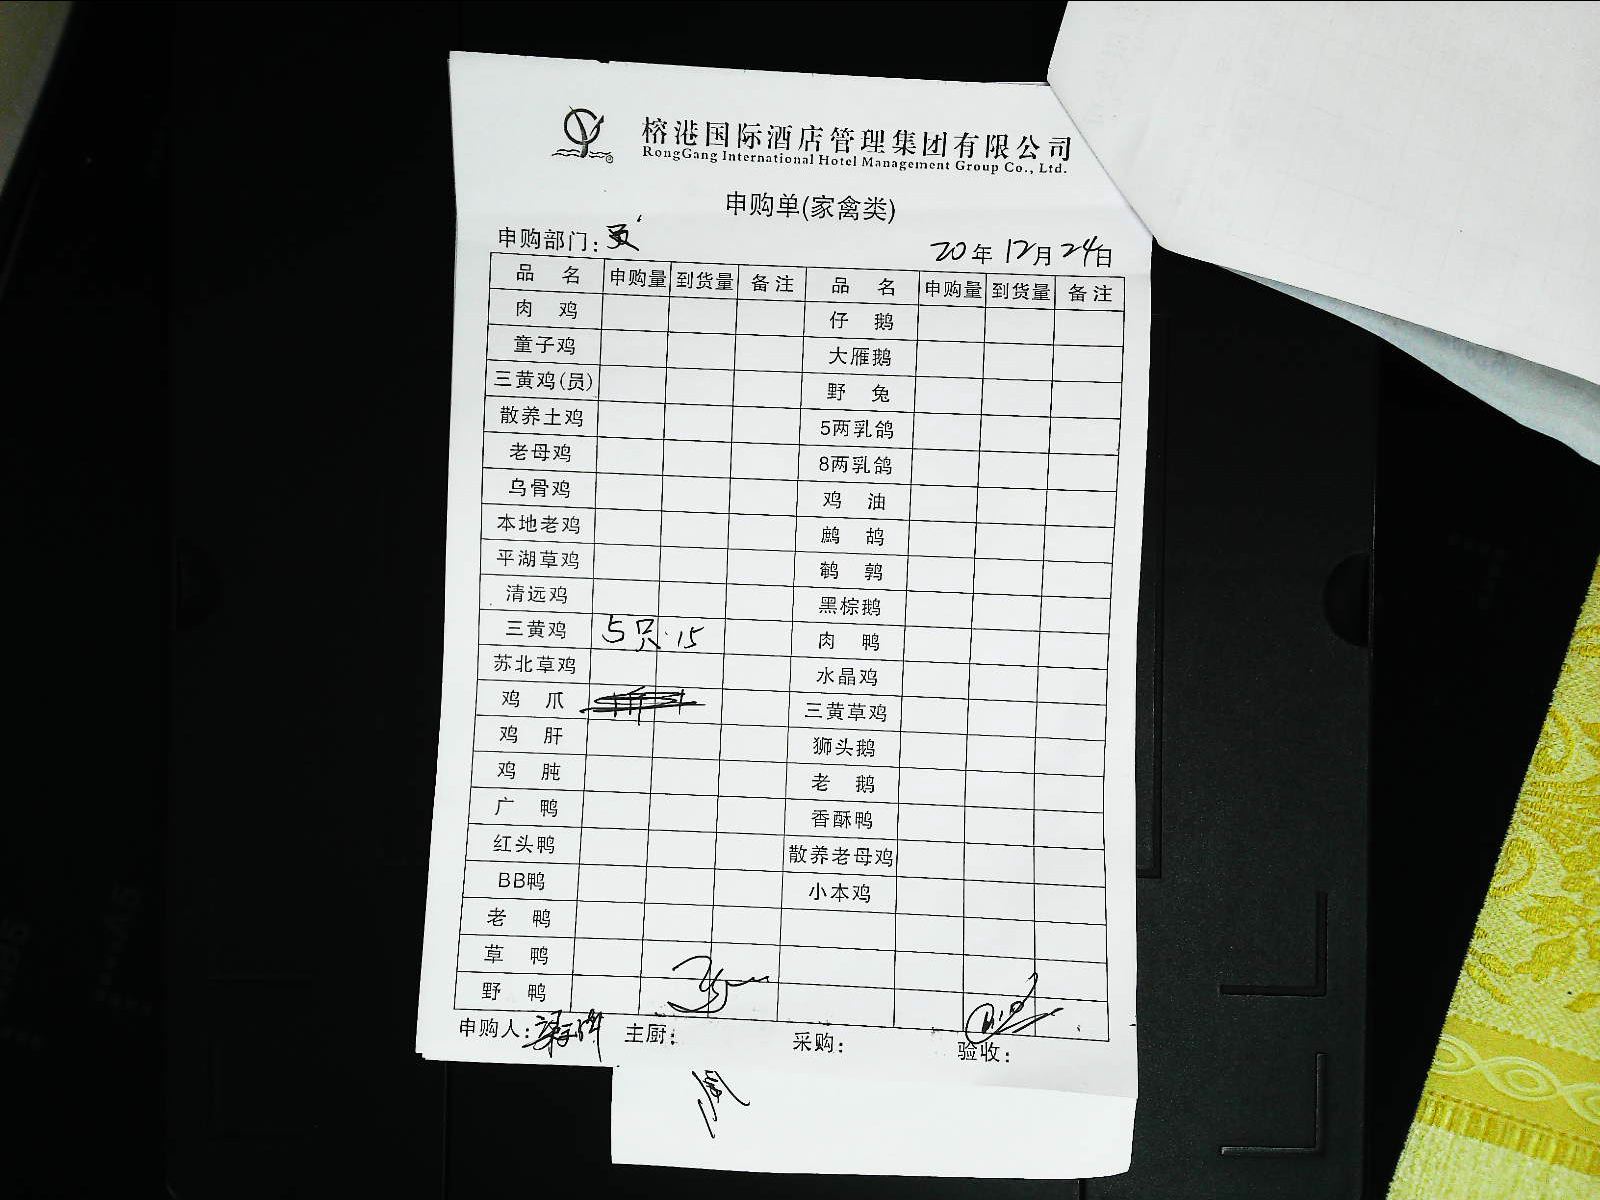 榕港国际酒店管理集团有限公司
RongGang International Hotel Management Group Co., Ltd.
申购单(家禽类)
申购部门: 20年12月24日
品 名 申购量 到货量 备注 品 名 申购量 到货量 备注
肉 鸡 仔 鹅
童子鸡 大雁鹅
三黄鸡(员) 野 兔
散养土鸡 5两乳鸽
老母鸡 8两乳鸽
乌骨鸡 鸡 油
本地老鸡 鹧 鸪
平湖草鸡 鹌 鹑
清远鸡 黑棕鹅
三黄鸡 5只 15 肉 鸭
苏北草鸡 水晶鸡
鸡 爪 三黄草鸡
鸡 肝 狮头鹅
鸡 肫 老 鹅
广 鸭 香酥鸭
红头鸭 散养老母鸡
BB鸭 小本鸡
老 鸭
草 鸭
野 鸭
申购人: 主厨: 采购: 验收: